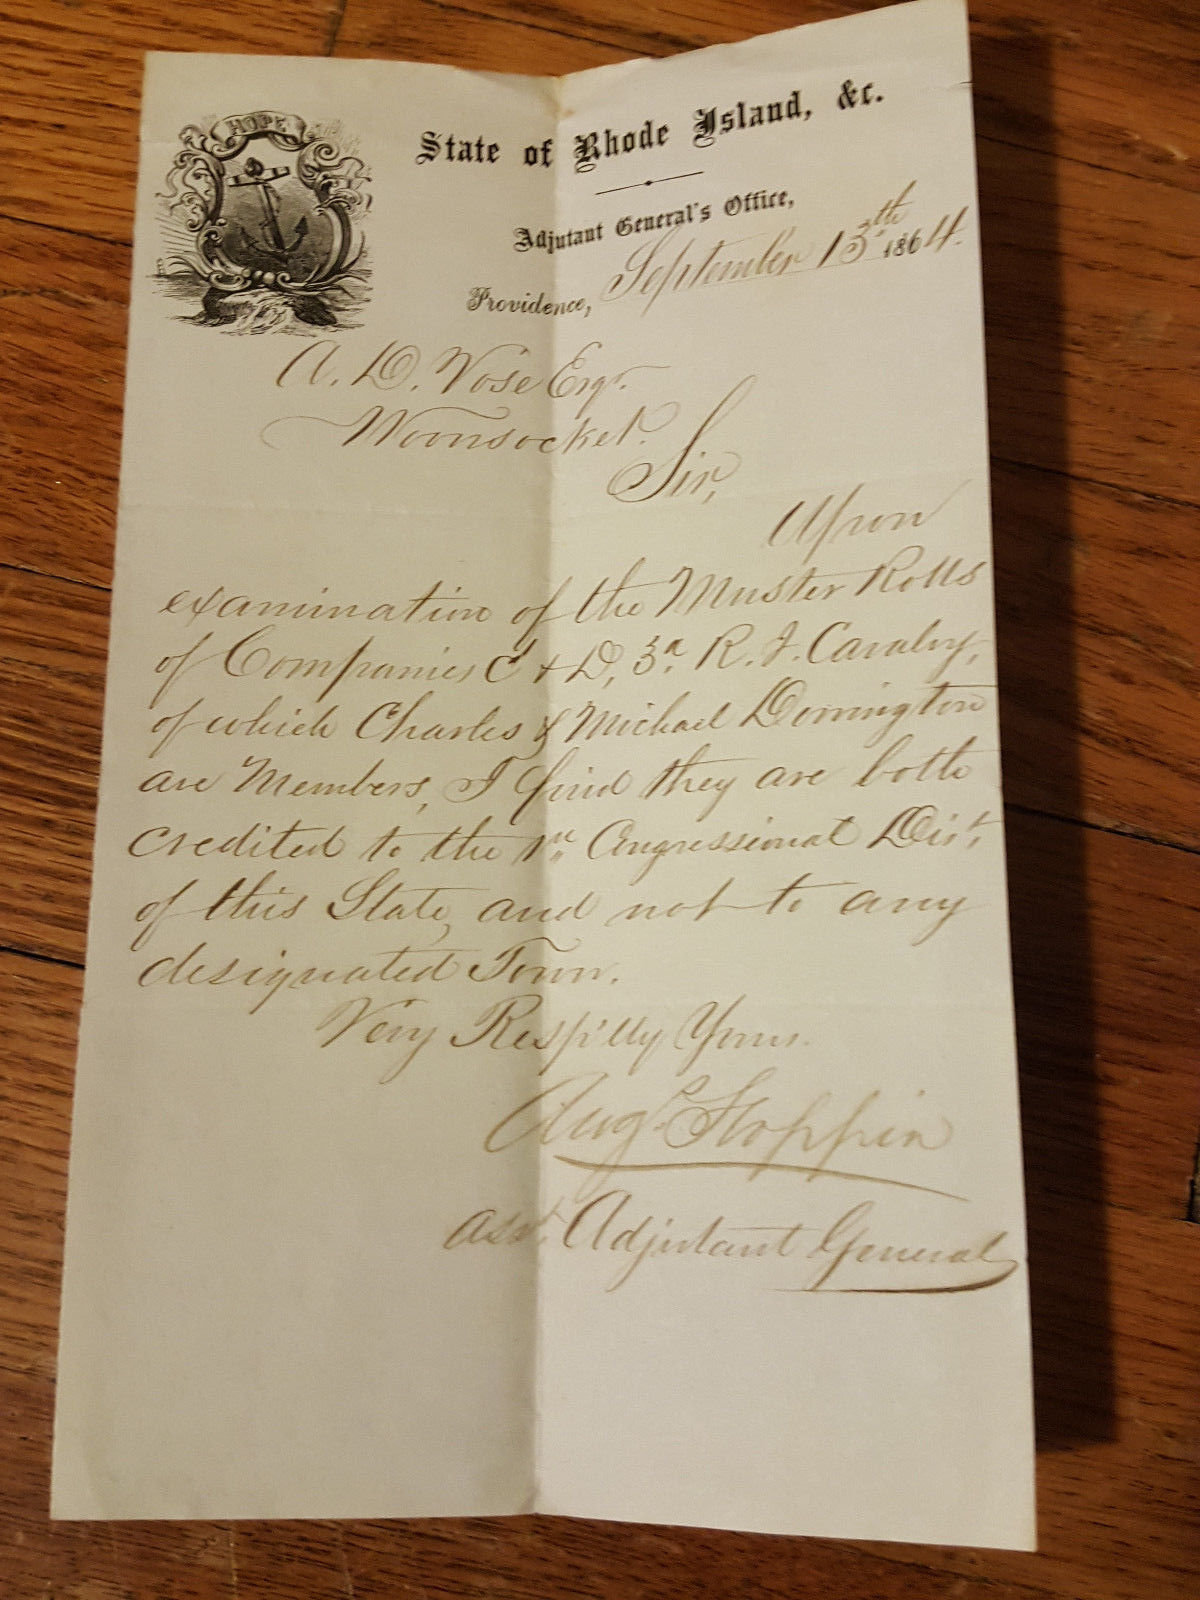 HOPE
State of Rhode Island, &c.
Adjutant General's Office,
Providence, September 13th 1864.
A. D. Vose Esqr.
Woonsocket.
Sir,
Upon
examination of the Muster Rolls
of Companies C & D, 3d R. I. Cavalry,
of which Charles & Michael Donnington
are Members, I find they are both
credited to the 1st Congressional Dist.
of this State, and not to any
designated Town.
Very Resp'lly Yours.
Augs. Hoppin
asst. Adjutant General